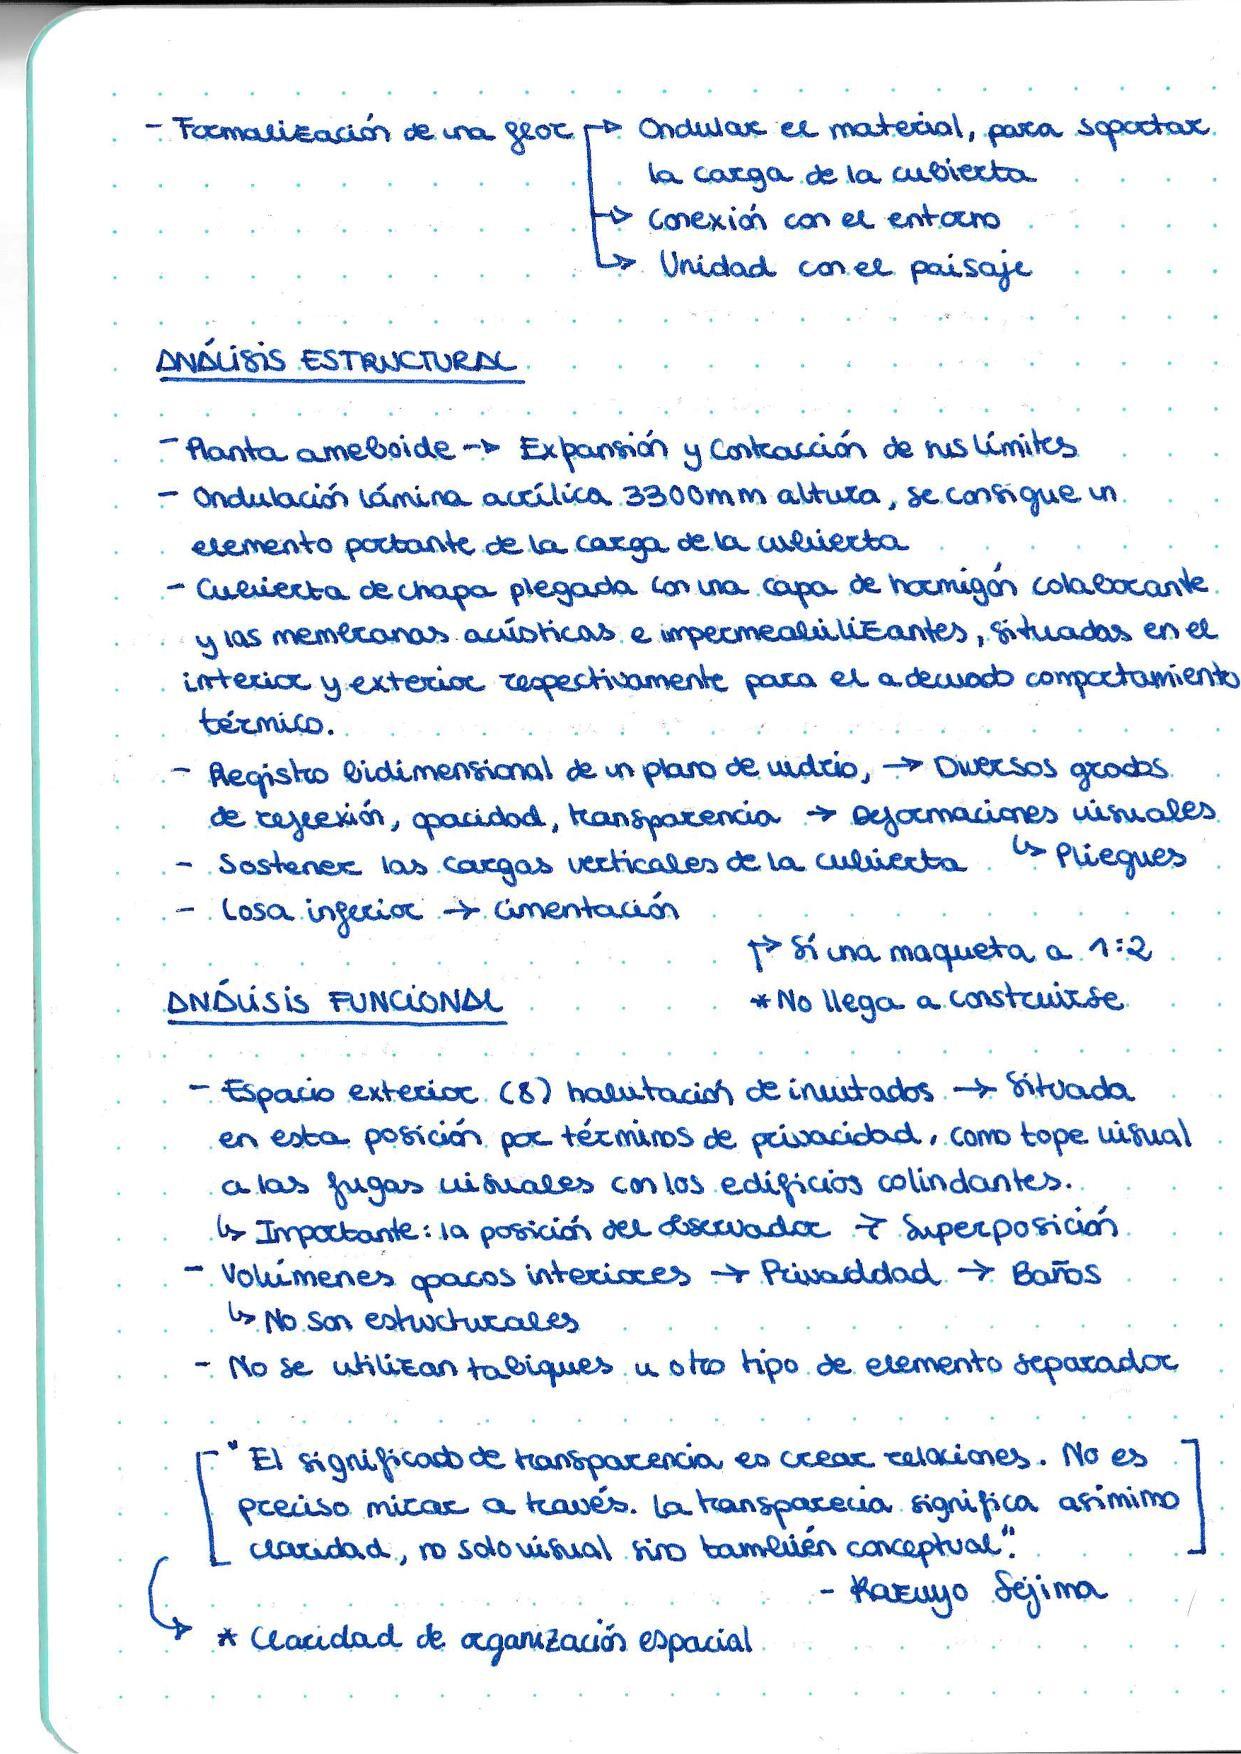 - Formalización de una flor → Ondular el material, para soportar
la carga de la cubierta
→ Conexión con el entorno
↳ Unidad con el paisaje
ANÁLISIS ESTRUCTURAL
- Planta ameboide → Expansión y Contracción de sus límites
- Ondulación lámina acrílica 3300mm altura, se consigue un
elemento portante de la carga de la cubierta
- Cubierta de chapa plegada con una capa de hormigón colaborante
y las membranas acústicas e impermeabilizantes, situadas en el
interior y exterior respectivamente para el adecuado comportamiento
térmico.
- Registro bidimensional de un plano de vidrio, → Diversos grados
de reflexión, opacidad, transparencia → Deformaciones visuales
- Sostener las cargas verticales de la cubierta ↳ Pliegues
- Losa inferior → cimentación
↱ Sí una maqueta a 1:2
ANÁLISIS FUNCIONAL * No llega a construirse
- Espacio exterior (8) habitación de invitados → Situada
en esta posición por términos de privacidad, como tope visual
a las fugas visuales con los edificios colindantes.
↳ Importante: la posición del observador → Superposición
- Volúmenes opacos interiores → Privaddad → Baños
↳ No son estructurales
- No se utilizan tabiques u otro tipo de elemento separador
"El significado de transparencia es crear relaciones. No es
preciso mirar a través. La transparecia significa asimimo
claridad, no solo visual sino también conceptual".
- Kazuyo Sejima
↳ * Claridad de organización espacial